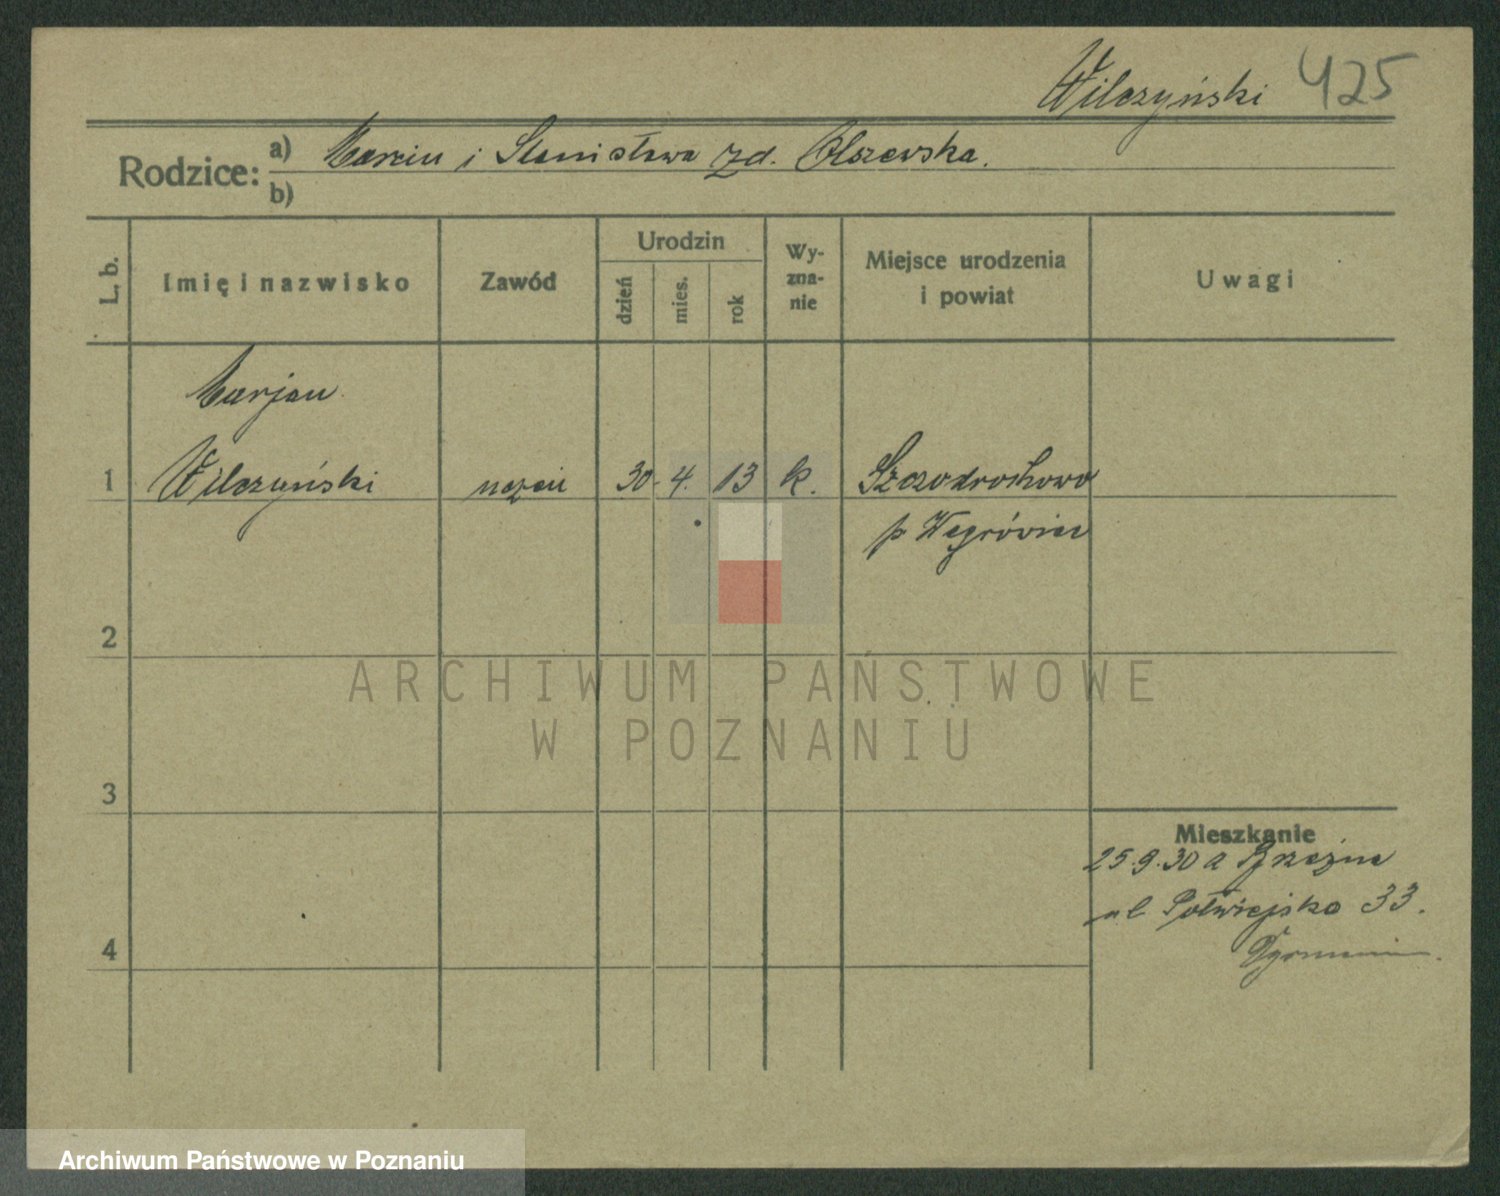 Wilczyński 425
Rodzice: a) Marcin i Stanisława zd. Olszewska.
b)
L. b.
Imię i nazwisko
Zawód
Urodzin
dzień
mies.
rok
Wy-
zna-
nie
Miejsce urodzenia
i powiat
Uwagi
Marjan
1 Wilczyński uczeń 30. 4. 13 k. Szczodrochowo
p Wągrówiec
2
ARCHIWUM PAŃSTWOWE
W POZNANIU
3
Mieszkanie
25.9.30 a
ul Półwiejska 33.
4
Archiwum Państwowe w Poznaniu